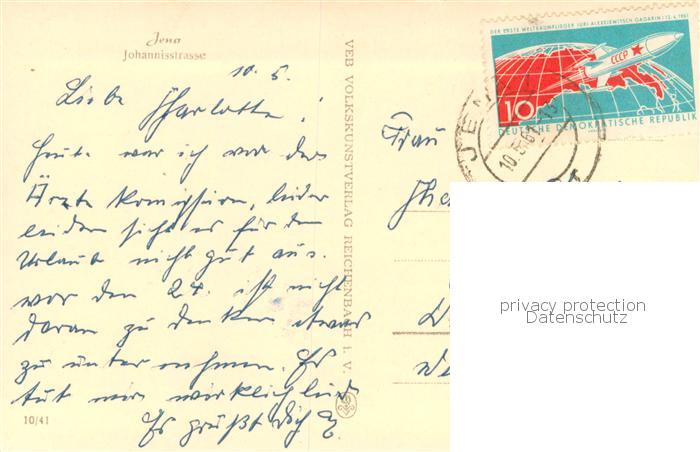 Jena
Johannisstrasse
10. 5.
Liebe Charlotte!
Heute war ich vor der
Ärzte Komission, leider
leider sieht es für den
Urlaub nicht gut aus.
vor den 24. ist nicht
daran zu denken etwas
zu unternehmen. Es
tut mir wirklich leid
Es grüßt Dich
10/41
VEB VOLKSKUNSTVERLAG REICHENBACH I. V.
DER ERSTE WELTRAUMFLIEGER JURI ALEXEJEWITSCH GAGARIN · 12.4.1961
CCCP
10
DEUTSCHE DEMOKRATISCHE REPUBLIK
JENA
10.5.61
Frau
privacy protection
Datenschutz